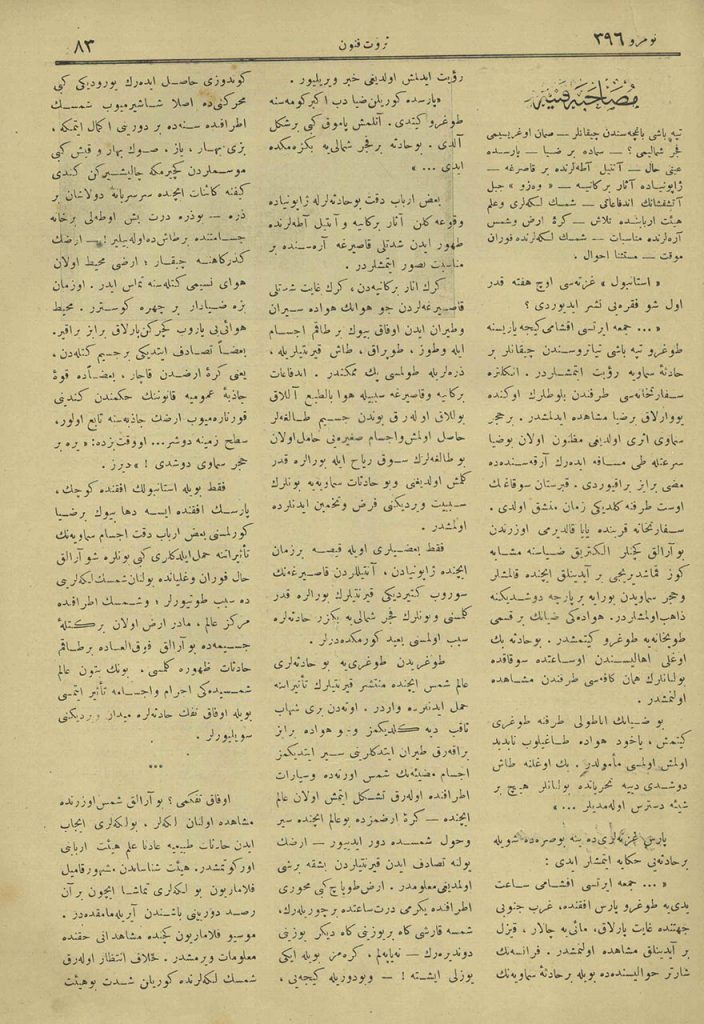 نومرو ٣٩٦
ثروت فنون
٨٣
مصاحبۀ فنیه
تپه باشی باغچه‌سندن چیقانلر — صمان اوغریسیمی
فجر شمالیمی ؟ — سماده بر ضیا — پارسده
عینی حال — آنتیل آطه‌لرنده بر قاصرغه —
ژاپونیاده آثار برکانیه — « وه‌زو » جبل
آتشفشانك اندفاعاتی — شمسك لكه‌لری وعلم
هیئت اربابنده تلاش — كرۀ ارض وشمس
آره‌لرنده مناسبات — شمسك لكه‌لرنده فوران
موقت — مستثنا احوال .
« استانبول » غزته‌سی اوچ هفته قدر
اول شو فقره‌یی نشر ایدیوردی ؟
« ... جمعه ایرتسی اقشامی كیجه یاریسنه
طوغرو تپه باشی تیاتروسندن چیقانلر بر
حادثۀ سماویه رؤیت ایتمشلردر . انكلتره
سفارتخانه‌سی طرفندن بلوطلرك اوكنده
یووارلاق برضیا مشاهده ایدلمشدر . برحجر
سماوی اثری اولدیغی مظنون اولان بوضیا
سرعتله طی مسافه ایدرك آرقه‌سنده‌ده
مضی برایز براقیوردی . قبرستان سوقاغنك
اوست طرفنه كلدیكی زمان منشق اولدی .
سفارتخانه قربنده یایا قالدیرمی اوزرندن
بوآرالق كچنلر الكتریق ضیاسنه مشابه
كوز قماشدیریجی بر آیدینلق ایچنده قالمشلر
وحجر سماویدن بورایه بر پارچه دوشدیكنه
ذاهب‌اولمشلردر . هواده‌كی ضیانك بر قسمی
طوپخانه‌یه طوغرو كیتمشدر . بوحادثه بك
اوغلی اهالیسندن اوساعتده سوقاقده
بولنانلرك همان كافه‌سی طرفندن مشاهده
اولنمشدر .
بو ضیانك اناطولی طرفنه طوغری
كیتمش ، یاخود هواده طاغیلوب نابدید
اولمش اولمسی مأمولدر . بك اوغلنه طاش
دوشدی دییه تحریاتده بولنانلر هیچ بر
شیئه دسترس اوله‌مدیلر ... »
پارس غزته‌لری‌ده ینه بوصره‌ده شویله
بر حادثه‌یی حكایه ایتمشلر ایدی :
« ... جمعه ایرتسی اقشامی ساعت
یدی‌یه طوغرو پارس افقنده ، غرب جنوبی
جهتنده غایت پارلاق ، مائی‌یه چالار ، قیزل
بر آیدینلق مشاهده اولنمشدر . فرانسه‌نك
شارتر حوالیسنده‌ده بویله بر حادثۀ سماویه‌نك
رؤیت ایدلمش اولدیغی خبر ویریلیور .
« پارسده كوریلان ضیا دب اكبر كومه‌سنه
طوغرو كیتدی . آتلمش پاموق كبی برشكل
آلدی . بوحادثه برفجر شمالی‌یه بكزه‌مكده
ایدی ... »
بعض ارباب دقت بوحادثه‌لرله ژاپونیاده
وقوعه كلن آثار بركانیه و آنتیل آطه‌لرنده
ظهور ایدن شدتلی قاصیرغه آره‌سنده بر
مناسبت تصور ایتمشلردر .
كرك آثار بركانیه‌دن ، كرك غایت شدتلی
قاصیرغه‌لردن جو هوانك هواده سیران
وطیران ایدن اوفاق بیوك بر طاقم اجسام
ایله وطوز ، طوپراق ، طاش قیرنتیلریله ،
ذره‌لریله طولمسی پك ممكندر . اندفاعات
بركانیه وقاصیرغه سببیله هوا بالطبع آللاق
بوللاق اوله‌رق بوندن جسیم طالغه‌لر
حاصل اولمش واجسام صغیره‌یی حامل‌اولان
بو طالغه‌لرك سوق ریاح ایله بورالره قدر
كلمش اولدیغی وبو حادثات سماویه‌یه بونلرك
سببیت ویردیكنی فرض وتخمین ایدنلرده
اولمشدر .
فقط بعضیلری اویله قیصه برزمان
ایچنده ژاپونیادن ، آنتیللردن قاصیرغه‌نك
سوروب كتیردیكی قیرنتیلرك بورالره قدر
كلمسنی وبونلرك فجر شمالی‌یه بكزر حادثه‌لره
سبب اولمسنی بعید كورمكده‌درلر .
طوغریدن طوغری‌یه بو حادثه‌لری
عالم شمس ایچنده منتشر قیرنتیلرك تأثیراتنه
حمل ایدنلرده واردر . اوته‌دن بری شهاب
ثاقب دیه كلدیكمز وجو هواده برایز
براقه‌رق طیران ایتدكلرینی سیر ایتدیكمز
اجسام مضیئه‌نك شمس اورته‌ده وسیارات
اطرافنده اوله‌رق تشكل ایتمش اولان عالم
ایچنده — كرۀ ارضمزده بوعالم ایچنده سیر
وحول شمسده دور ایدییور — ارضك
یولنه تصادف ایدن قیرنتیلردن بشقه برشی
اولمدیغی معلومدر . ارض طوپاچ كبی محوری
اطرافنده یكرمی درت ساعتده برچوریله‌رك ،
شمسه قارشی كاه بریوزینی كاه دیكر یوزینی
دوندیره‌رك — نه‌یاپه‌لم ، كره‌مز بویله ایكی
یوزلی ایشته ! — وبودوریله كیجه‌یی ،
كوندوزی حاصل ایده‌رك یورودیكی كبی
محركنی‌ده اصلا شاشیرمیوب شمسك
اطرافنده سنه‌ده بر دورینی اكمال ایتمكه ،
بزی بهار ، یاز ، صوك بهار و قیش كبی
موسملردن كچیرمكه چالیشیركن كندی
كیفنه كائنات ایچنده سرسریانه دولاشان بر
ذره — بوذره درت بش اوطه‌لی برخانه
جسامتنده بر طاش‌ده اوله‌بیلیر ! — ارضك
كذركاهنه چیقار ؛ ارضی محیط اولان
هوای نسیمی كتله‌سنه تماس ایدر . اوزمان
بزه ضیادار بر چهره كوسترر . محیط
هوائی‌یی یاروب كچركن پارلاق برایز براقیر .
بعضاً تصادف ایتدیكی برجسیم كتله‌دن ،
یعنی كرۀ ارضدن قاچار ، بعضاًده قوۀ
جاذبۀ عمومیه قانوننك حكمندن كندینی
قورتاره‌میوب ارضك جاذبه‌سنه تابع اولور ،
سطح زمینه دوشر... اووقت بزده : « یره بر
حجر سماوی دوشدی ! » دیرز .
فقط بویله استانبولك افقنده كوچك ،
پارسك افقنده ایسه دها بیوك برضیا
كورلمسنی بعض ارباب دقت اجسام سماویه‌نك
تأثیراتنه حمل ایلدكلری كبی بونلره شو آرالق
حال فوران وغلیانده بولنان شمسك لكه‌لرینی
ده سبب طوتیورلر ؛ وشمسك اطرافنده
مركز عالم ، مادر ارض اولان بركتلۀ
جسیمه‌ده بوآرالق فوق‌العاده برطاقم
حادثات ظهوره كلمسی . بونك بتون عالم
شمسیده‌كی اجرام واجسامه تأثیر ایتمسی
بویله اوفاق تفك حادثه‌لره میدان ویردیكنی
سویلیورلر .
***
اوفاق تفكمی ؟ بوآرالق شمس اوزرنده
مشاهده اولنان لكه‌لر . بولكه‌لری ایجاب
ایدن حادثات طبیعیه عادتا علم هیئت اربابنی
اوركوتمشدر . هیئت شناساندن مشهور قامیل
فلاماریون بو لكه‌لری تماشا ایچون بر آن
رصد دوربینی باشندن آیریله‌مامقده‌در .
موسیو فلاماریون كچنده مشاهداتی حقنده
معلومات ویرمشدر . خلاف انتظار اوله‌رق
شمسك لكه‌لرنده كوریلان شدت بوهیئت